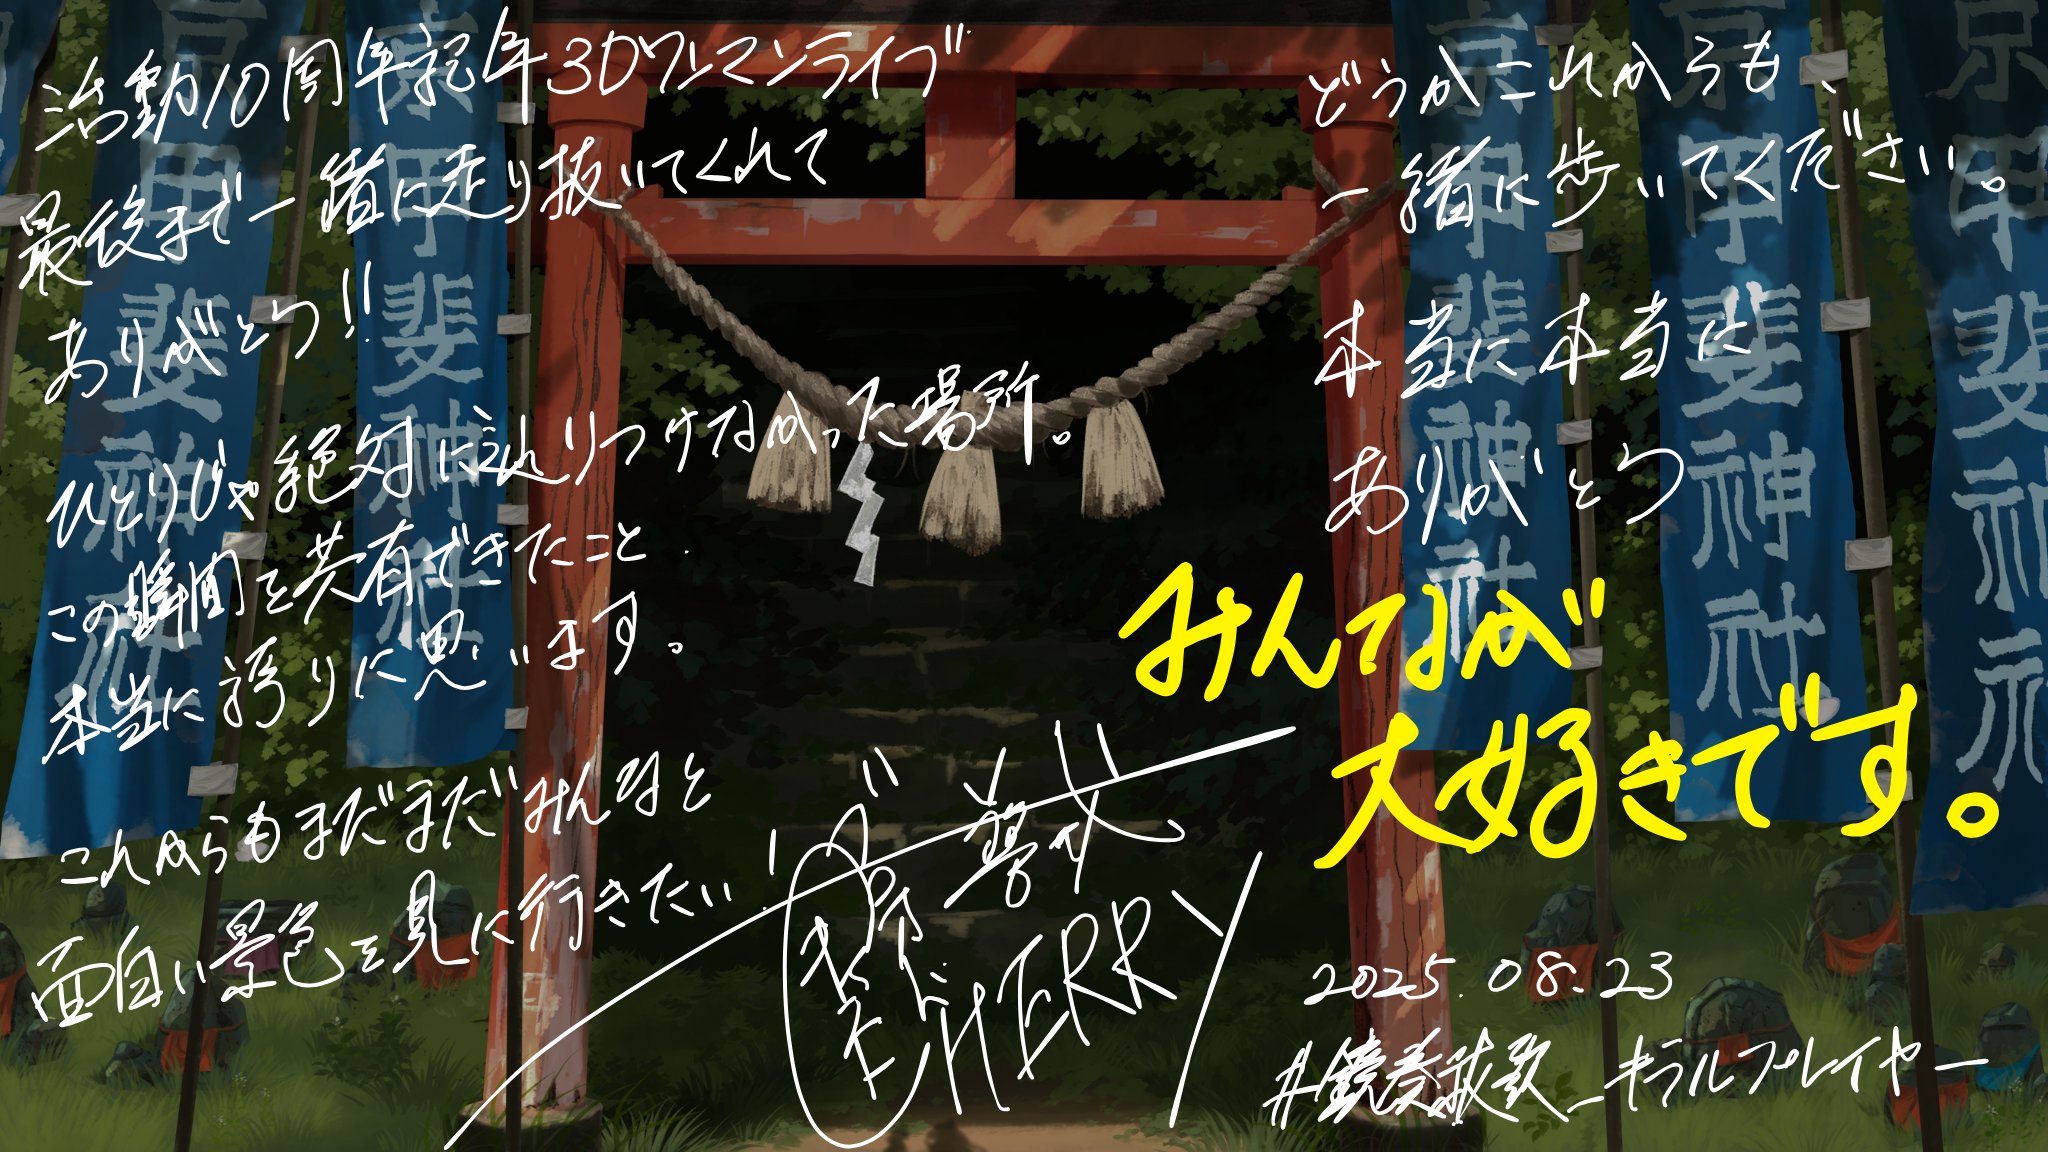 活動10周年記年3Dワンマンライブ
最後まで一緒に走り抜いてくれて
ありがとう!!
ひとりじゃ絶対に辿りつけなかった場所。
この瞬間を共有できたこと
本当に誇りに思います。
これからもまだまだみんなと
面白い景色を見に行きたい!
CHERRY
どうかこれからも、
一緒に歩いてください。
本当に本当に
ありがとう
みんなが
大好きです。
2025.08.23
京甲斐神社
京甲斐神社
京甲斐神社
京甲斐神社
京甲斐神社